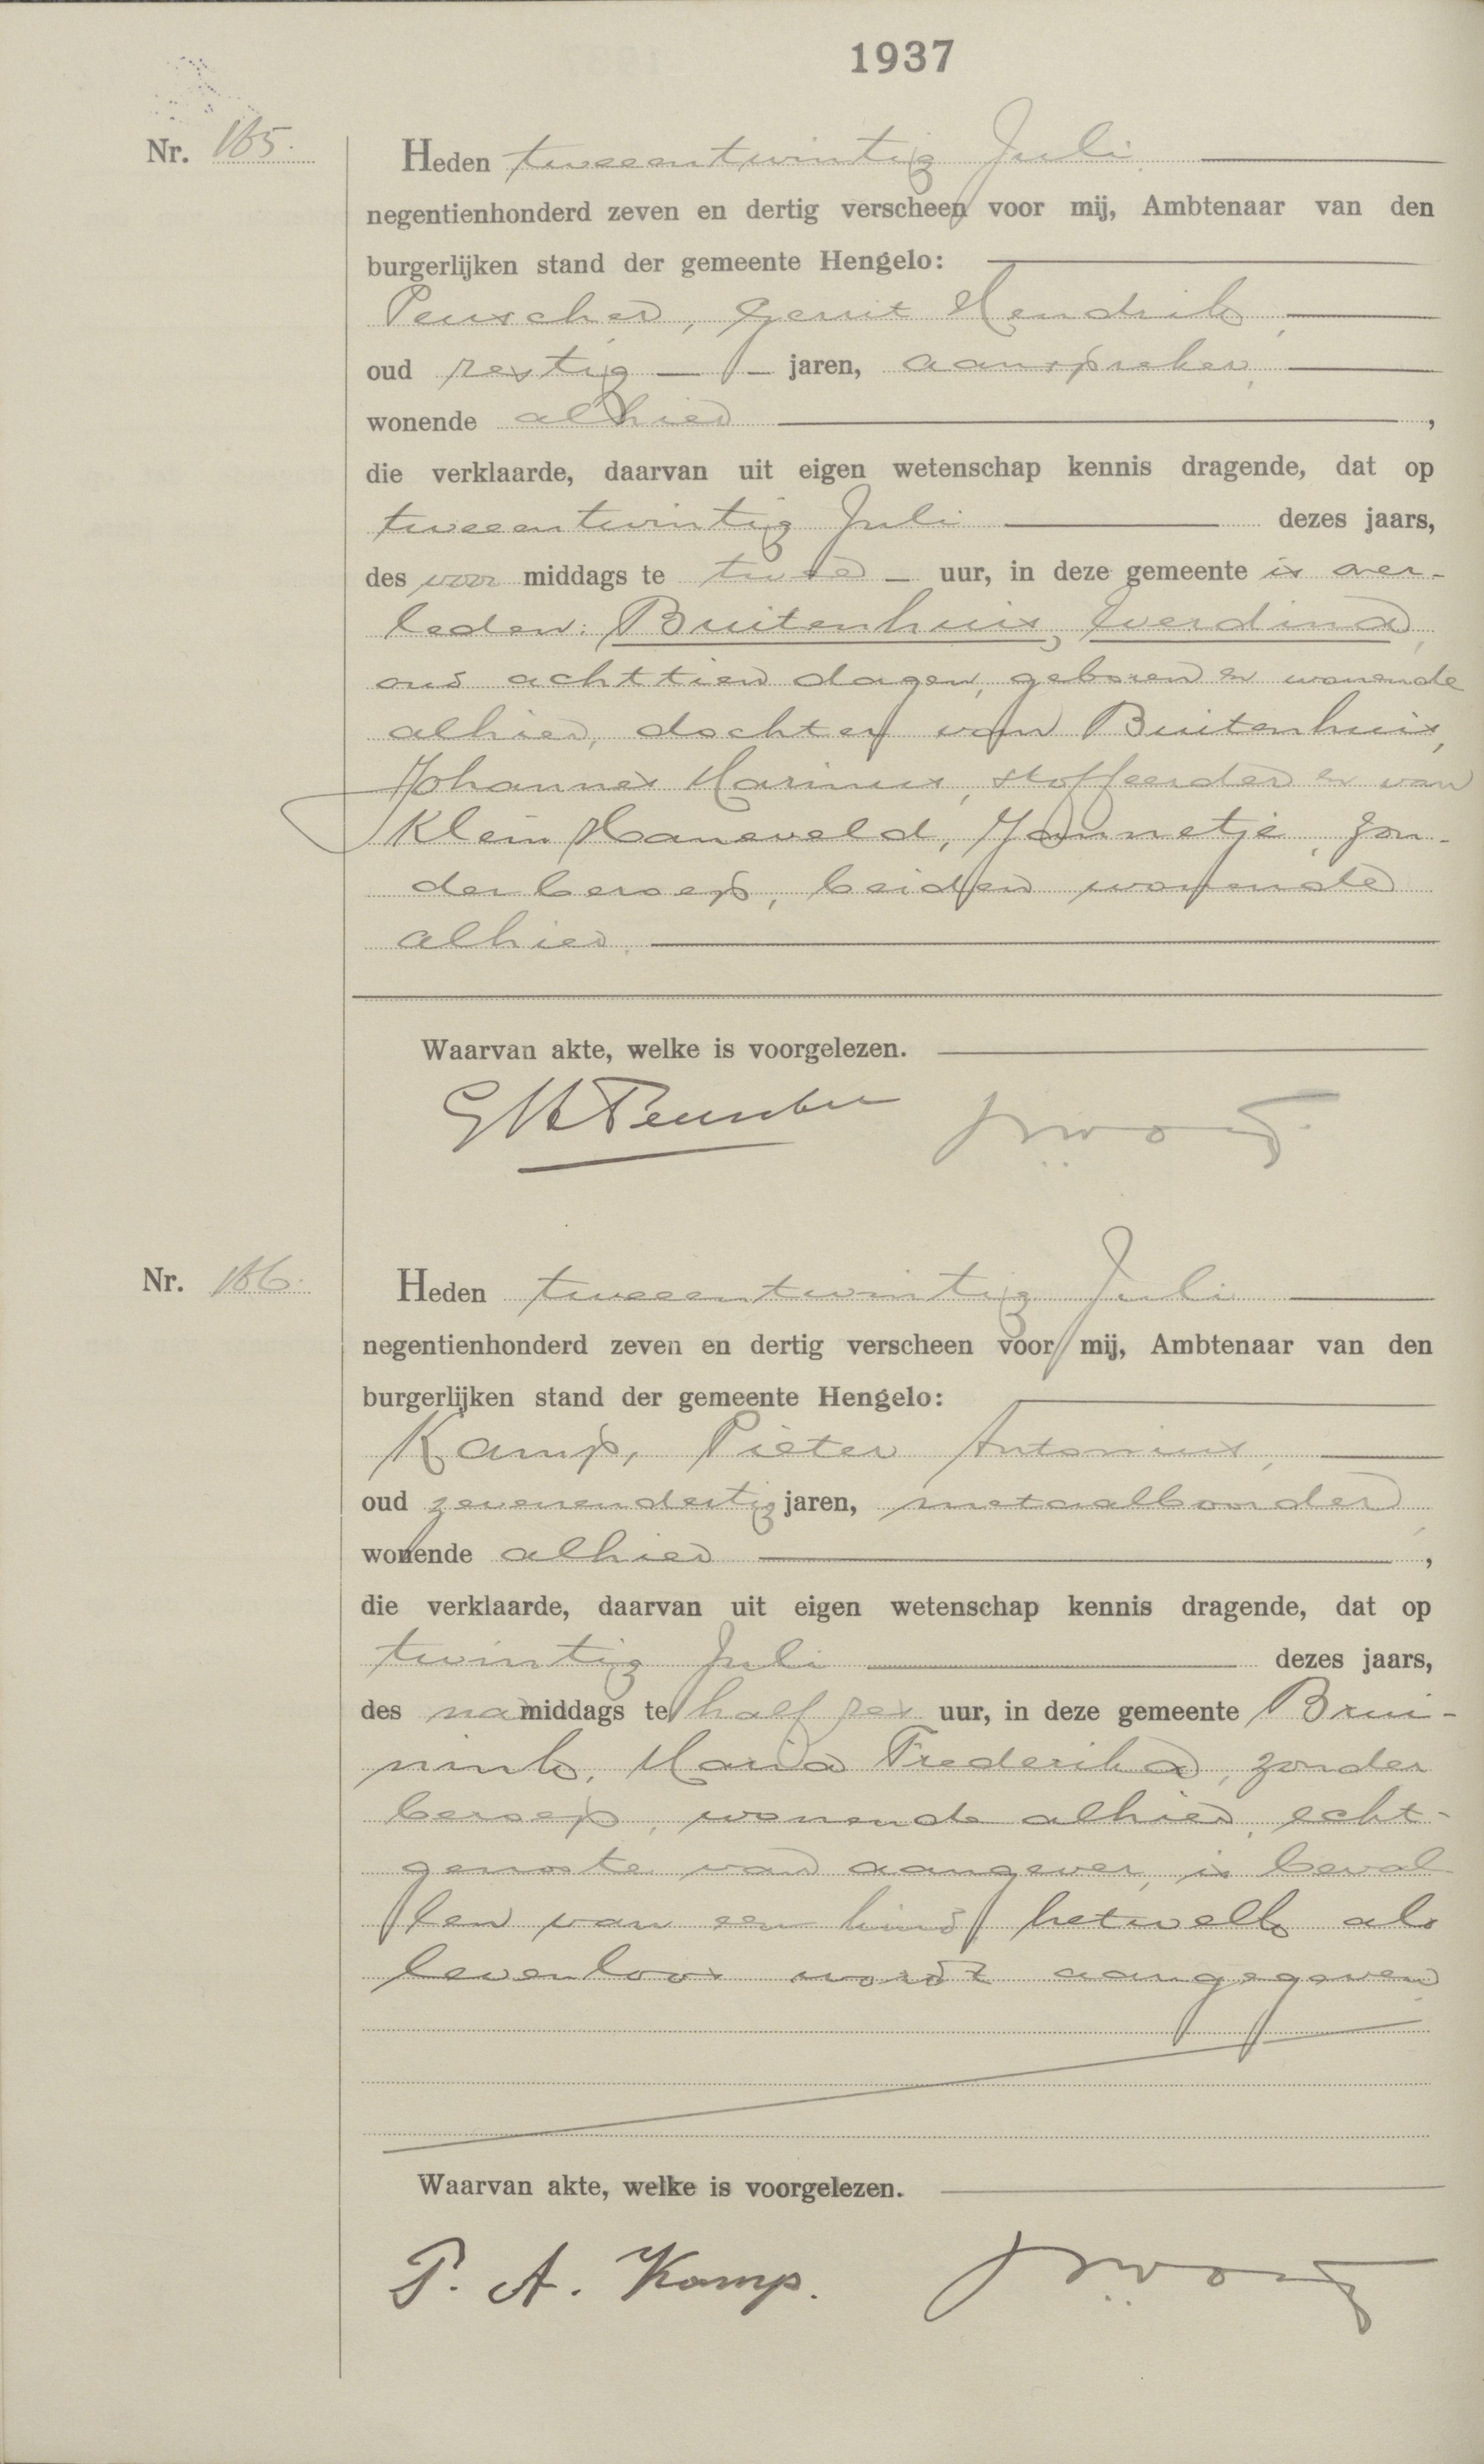 1937
Nr. 165.
Heden tweeentwintig Juli
negentienhonderd zeven en dertig verscheen voor mij, Ambtenaar van den
burgerlijken stand der gemeente Hengelo:
Peuscher, Gerrit Hendrik,
oud zestig jaren, aanspreker,
wonende alhier ,
die verklaarde, daarvan uit eigen wetenschap kennis dragende, dat op
tweeentwintig Juli dezes jaars,
des voor middags te twee uur, in deze gemeente is over-
leden: Buitenhuis, Everdina,
oud achttien dagen, geboren en wonende
alhier, dochter van Buitenhuis,
Johannes Marinus, stoffeerder en van
Klein Haneveld, Jannetje, zon-
der beroep, beiden wonende
alhier.
Waarvan akte, welke is voorgelezen.
GH Peuscher
Nr. 166.
Heden tweeentwintig Juli
negentienhonderd zeven en dertig verscheen voor mij, Ambtenaar van den
burgerlijken stand der gemeente Hengelo:
Kamp, Pieter Antonius,
oud zevenendertig jaren, metaalboorder,
wonende alhier ,
die verklaarde, daarvan uit eigen wetenschap kennis dragende, dat op
twintig Juli dezes jaars,
des na middags te half zes uur, in deze gemeente Brui-
nink, Maria Frederika, zonder
beroep, wonende alhier, echt-
genoote van aangever, is beval-
len van een kind, hetwelk als
levenloos wordt aangegeven.
Waarvan akte, welke is voorgelezen.
P. A. Kamp.